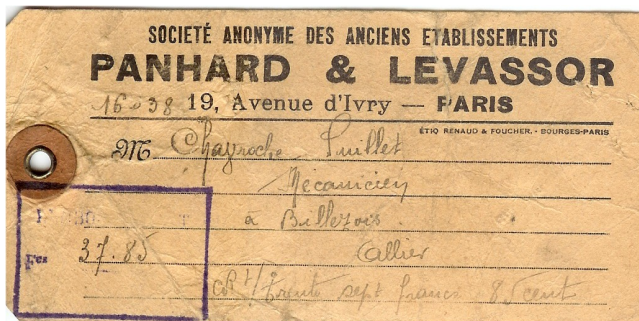 SOCIETÉ ANONYME DES ANCIENS ETABLISSEMENTS
PANHARD & LEVASSOR
16 38 19, Avenue d'Ivry — PARIS
ÉTIQ RENAUD & FOUCHER. - BOURGES-PARIS
M Chayroche Puillet
Mecanicien
à Billezois
Allier
Fcs 37.85
Trente sept francs 85 cent